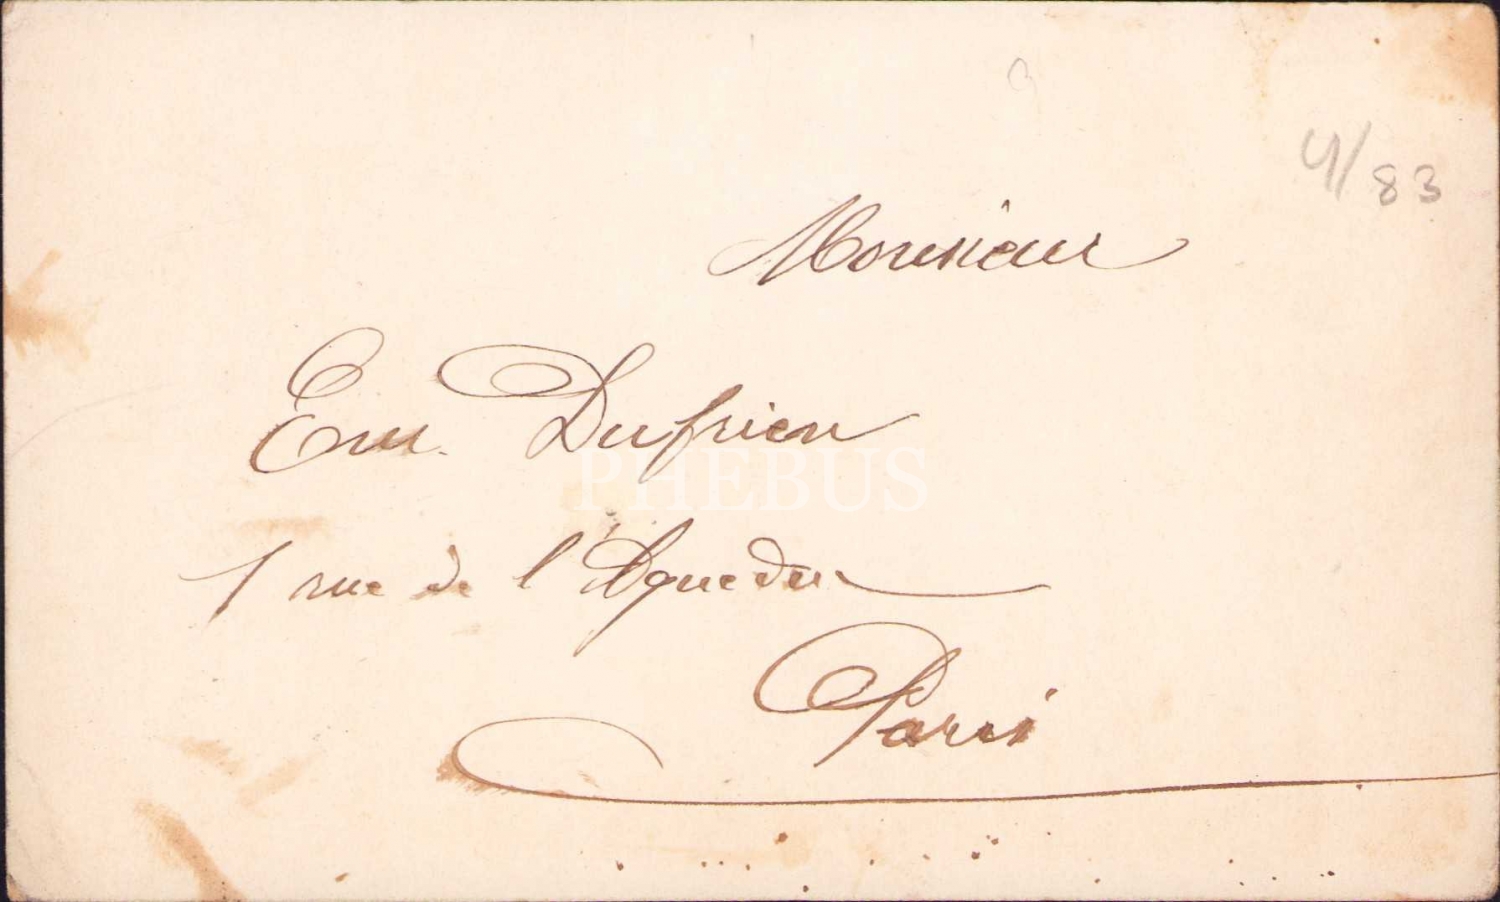 4/83
Monsieur
Em. Dufrien
1 rue de l'Aqueduc
Paris
PHEBUS